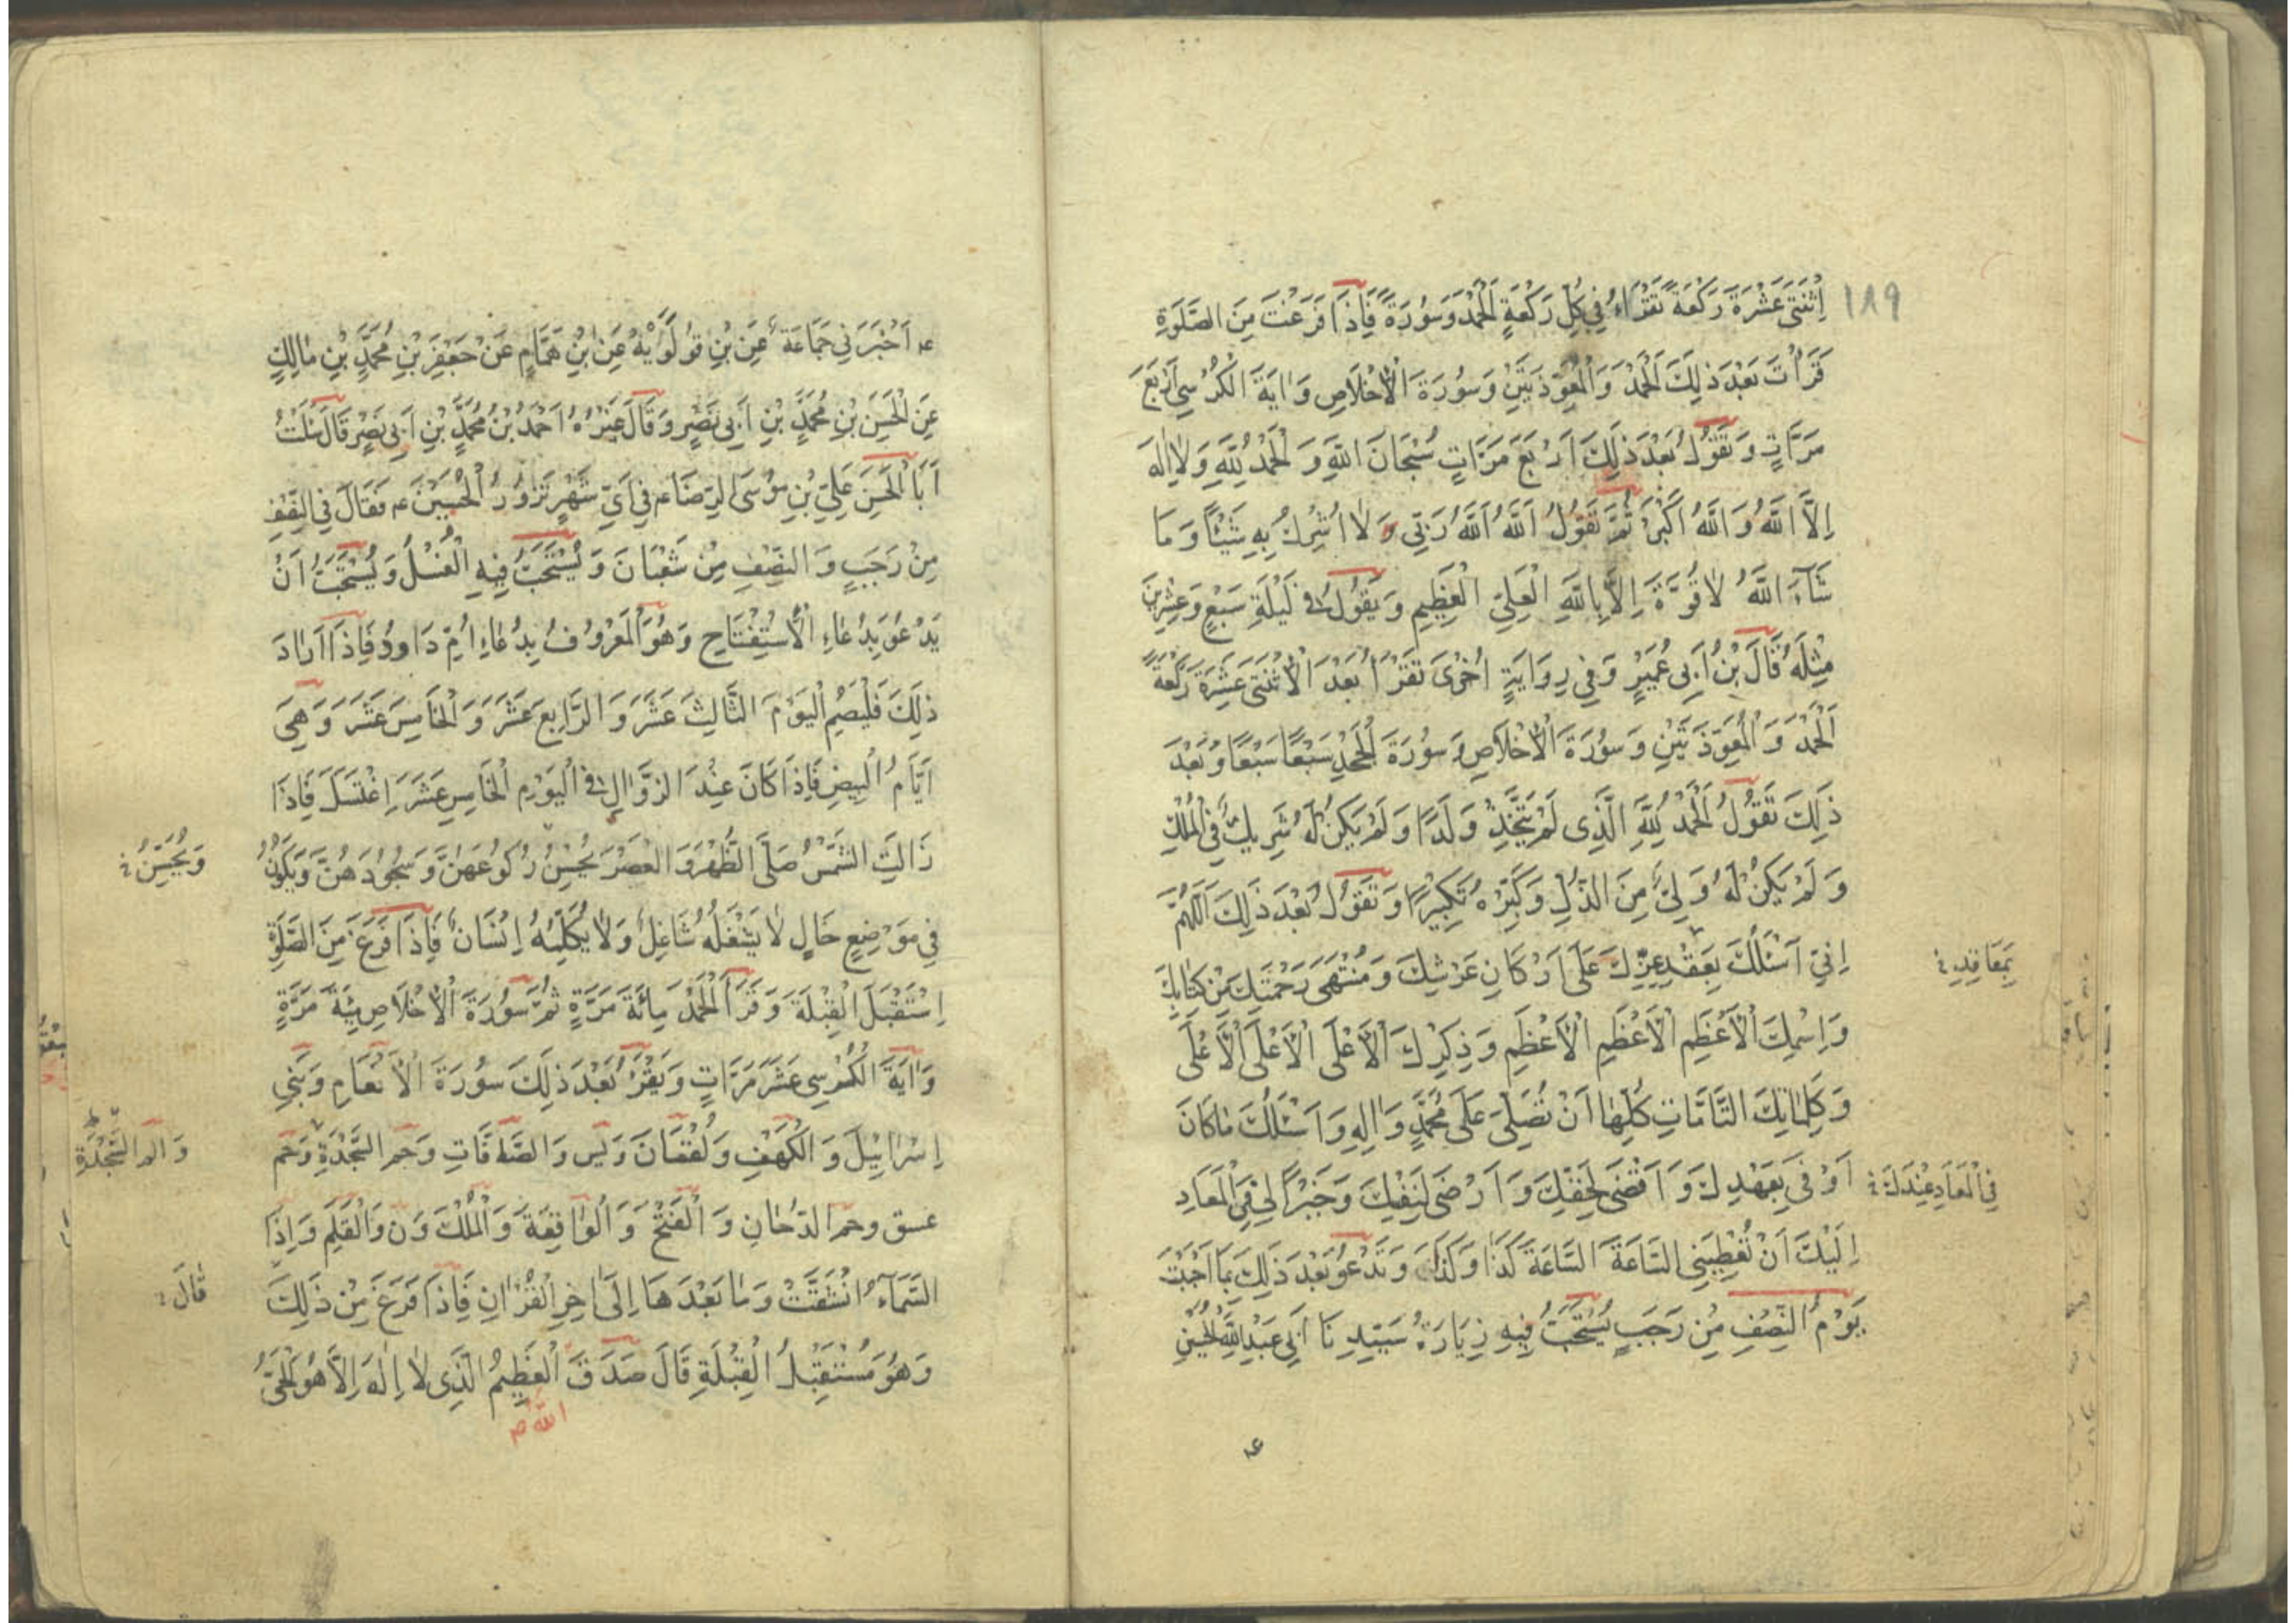 ١٨٩
اِثْنَتَىْ عَشْرَةَ رَكْعَةً تَقْرَاءُ فِي كُلِّ رَكْعَةٍ اَلْحَمْدَ وَسُورَةً فَاِذَا فَرَغْتَ مِنَ الصَّلٰوةِ
قَرَأْتَ بَعْدَ ذٰلِكَ اَلْحَمْدَ وَالْمُعَوِّذَتَيْنِ وَسُورَةَ الْاِخْلَاصِ وَاٰيَةَ الْكُرْسِيِّ اَرْبَعَ
مَرَّاتٍ وَتَقُولُ بَعْدَ ذٰلِكَ اَرْبَعَ مَرَّاتٍ سُبْحَانَ اللّٰهِ وَالْحَمْدُ لِلّٰهِ وَلَا اِلٰهَ
اِلَّا اللّٰهُ وَاللّٰهُ اَكْبَرُ ثُمَّ تَقُولُ اَللّٰهُ اَللّٰهُ رَبِّي وَ لَا اُشْرِكُ بِهِ شَيْئًا وَمَا
شَآءَ اللّٰهُ لَا قُوَّةَ اِلَّا بِاللّٰهِ الْعَلِيِّ الْعَظِيمِ وَيَقُولُ فِي لَيْلَةِ سَبْعٍ وَعِشْرِينَ
مِثْلَهُ قَالَ بْنُ اَبِي عُمَيْرٍ وَفِي رِوَايَةٍ اُخْرٰى تَقْرَأُ بَعْدَ الْاِثْنَتَىْ عَشْرَةَ رَكْعَةً
اَلْحَمْدَ وَالْمُعَوِّذَتَيْنِ وَسُورَةَ الْاِخْلَاصِ وَسُورَةَ الْجَحْدِ سَبْعًا سَبْعًا وَبَعْدَ
ذٰلِكَ تَقُولُ اَلْحَمْدُ لِلّٰهِ الَّذِي لَمْ يَتَّخِذْ وَلَدًا وَلَمْ يَكُنْ لَهُ شَرِيكٌ فِي الْمُلْكِ
وَلَمْ يَكُنْ لَهُ وَلِيٌّ مِنَ الذُّلِّ وَكَبِّرْهُ تَكْبِيرًا وَتَقُولُ بَعْدَ ذٰلِكَ اَللّٰهُمَّ
اِنِّي اَسْئَلُكَ بِعَقْدِ عِزِّكَ عَلٰى اَرْكَانِ عَرْشِكَ وَمُنْتَهَى رَحْمَتِكَ مِنْ كِتَابِكَ
بِمَعَاقِدِ
وَاِسْمِكَ الْاَعْظَمِ الْاَعْظَمِ الْاَعْظَمِ وَذِكْرِكَ الْاَعْلَى الْاَعْلَى الْاَعْلَى
وَكَلِمَاتِكَ التَّامَّاتِ كُلِّهَا اَنْ تُصَلِّيَ عَلٰى مُحَمَّدٍ وَاٰلِهِ وَاَسْئَلُكَ مَا كَانَ
اَوْفٰى بِعَهْدِكَ وَاَقْضٰى لِحَقِّكَ وَاَرْضٰى لِنَفْسِكَ وَخَيْرًا لِي فِي الْمَعَادِ
فِي الْمَعَادِ عِنْدَكَ
اِلَيْكَ اَنْ تُعْطِيَنِي السَّاعَةَ السَّاعَةَ كَذَا وَكَذَا وَتَدْعُو بَعْدَ ذٰلِكَ بِمَا اَحْبَبْتَ
يَوْمُ النِّصْفِ مِنْ رَجَبٍ يُسْتَحَبُّ فِيهِ زِيَارَةُ سَيِّدِنَا اَبِي عَبْدِ اللّٰهِ الْحُسَيْنِ
ع
ع اَخْبَرَنِي جَمَاعَةٌ عَنِ بْنِ قُولَوَيْهِ عَنِ بْنِ هَمَّامٍ عَنْ جَعْفَرِ بْنِ مُحَمَّدِ بْنِ مَالِكٍ
عَنِ الْحَسَنِ بْنِ مُحَمَّدِ بْنِ اَبِي نَصْرٍ وَقَالَ غَيْرُهُ اَحْمَدُ بْنُ مُحَمَّدِ بْنِ اَبِي نَصْرٍ قَالَ سَئَلْتُ
اَبَا الْحَسَنِ عَلِيِّ بْنِ مُوسَى الرِّضَا ع فِي اَيِّ شَهْرٍ تَزُورُ الْحُسَيْنَ ع فَقَالَ فِي النِّصْفِ
مِنْ رَجَبٍ وَالنِّصْفِ مِنْ شَعْبَانَ وَيُسْتَحَبُّ فِيهِ الْغُسْلُ وَيُسْتَحَبُّ اَنْ
يَدْعُوَ بِدُعَاءِ الْاِسْتِفْتَاحِ وَهُوَ الْمَعْرُوفُ بِدُعَاءِ اُمِّ دَاوُدَ فَاِذَا اَرَادَ
ذٰلِكَ فَلْيَصُمِ الْيَوْمَ الثَّالِثَ عَشَرَ وَالرَّابِعَ عَشَرَ وَالْخَامِسَ عَشَرَ وَهِيَ
اَيَّامُ الْبِيضِ فَاِذَا كَانَ عِنْدَ الزَّوَالِ فِي الْيَوْمِ الْخَامِسِ عَشَرَ اِغْتَسَلَ فَاِذَا
زَالَتِ الشَّمْسُ صَلَّى الظُّهْرَ وَالْعَصْرَ يُحْسِنُ رُكُوعَهُنَّ وَسُجُودَهُنَّ وَيَكُونُ
وَيُحْسِنُ
فِي مَوْضِعٍ خَالٍ لَا يَشْغَلُهُ شَاغِلٌ وَلَا يُكَلِّمُهُ اِنْسَانٌ فَاِذَا فَرَغَ مِنَ الصَّلٰوةِ
اِسْتَقْبَلَ الْقِبْلَةَ وَقَرَأَ الْحَمْدَ مِائَةَ مَرَّةٍ ثُمَّ سُورَةَ الْاِخْلَاصِ مِئَةَ مَرَّةٍ
وَاٰيَةَ الْكُرْسِي عَشَرَ مَرَّاتٍ وَيَقْرَءُ بَعْدَ ذٰلِكَ سُورَةَ الْاَنْعَامِ وَبَنِي
اِسْرَائِيلَ وَالْكَهْفِ وَلُقْمَانَ وَيٰس وَالصَّافَّاتِ وَحٰم السَّجْدَةِ وَحٰم
وَالٓم السَّجْدَةِ
عسق وحم الدُّخَانِ وَالْفَتْحَ وَالْوَاقِعَةَ وَالْمُلْكَ وَنٓ وَالْقَلَمِ وَاِذَا
السَّمَآءُ انْشَقَّتْ وَمَا بَعْدَهَا اِلٰى اٰخِرِ الْقُرْاٰنِ فَاِذَا فَرَغَ مِنْ ذٰلِكَ
قَالَ
وَهُوَ مُسْتَقْبِلُ الْقِبْلَةِ قَالَ صَدَقَ الْعَظِيمُ الَّذِي لَا اِلٰهَ اِلَّا هُوَ الْحَيُّ
اللّٰهُ